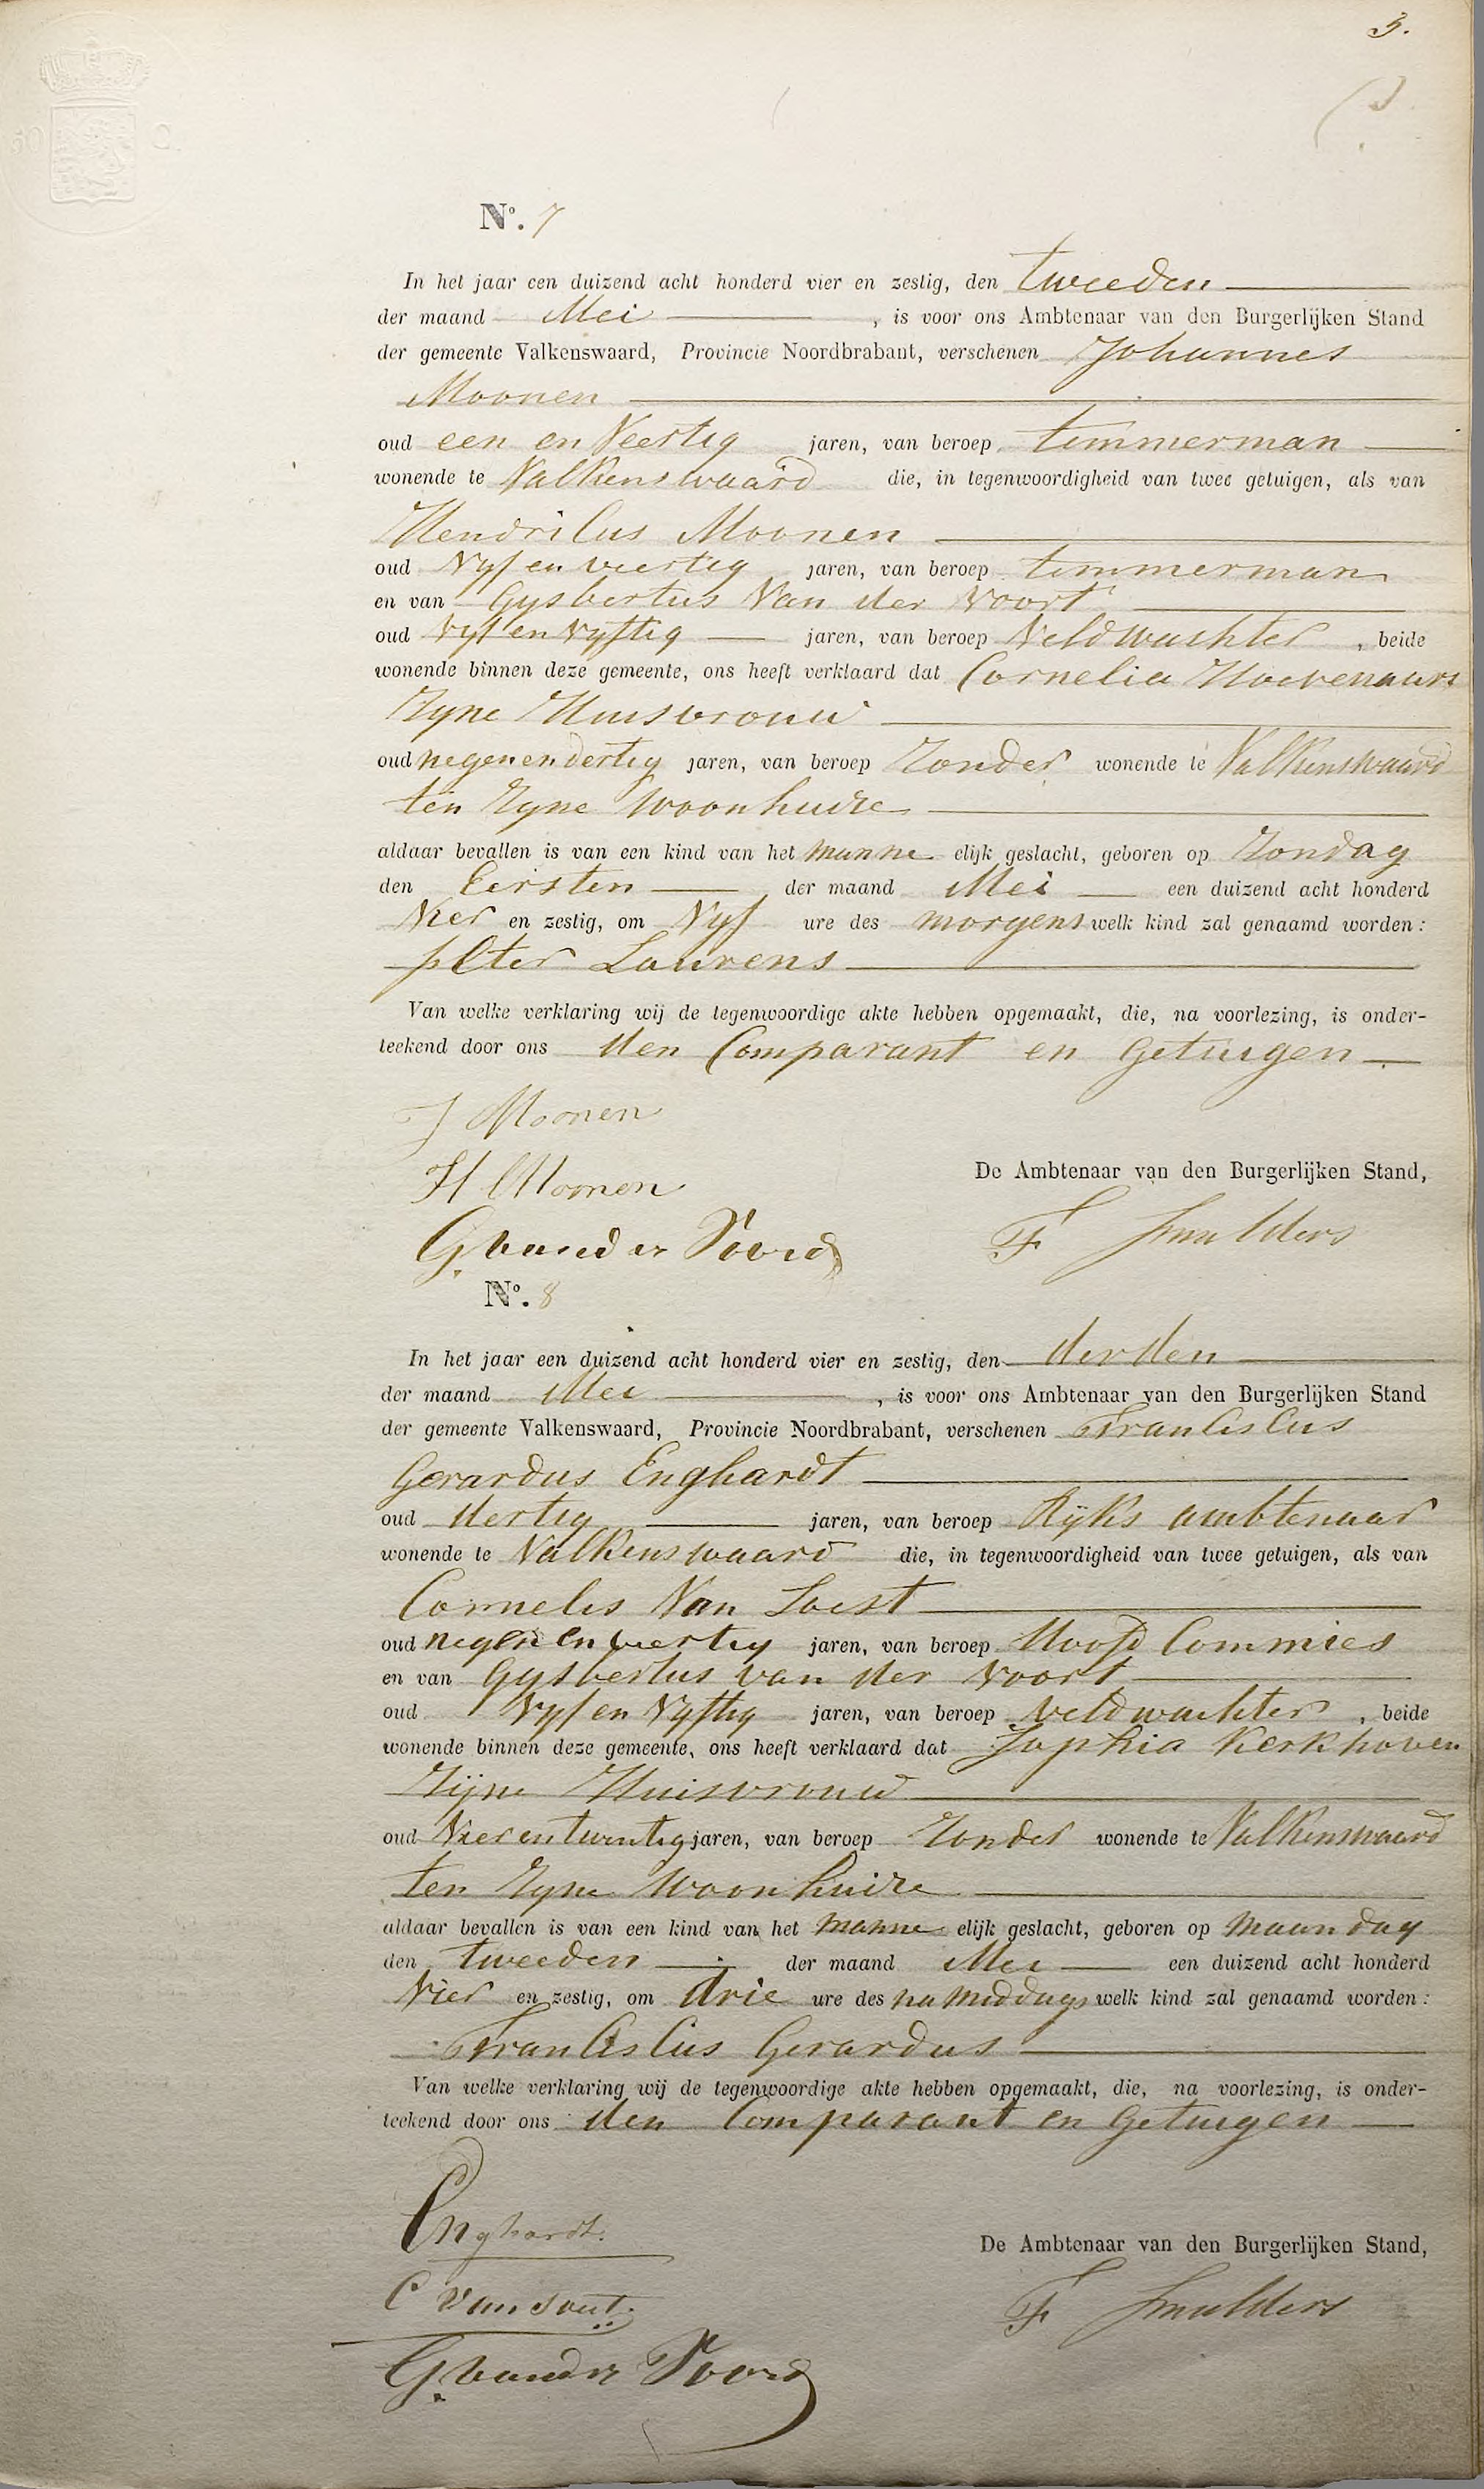 3.
50 C.
No. 7
In het jaar een duizend acht honderd vier en zestig, den tweeden
der maand Mei , is voor ons Ambtenaar van den Burgerlijken Stand
der gemeente Valkenswaard, Provincie Noordbrabant, verschenen Johannes
Moonen
oud een en Veertig jaren, van beroep timmerman
wonende te Valkenswaard die, in tegenwoordigheid van twee getuigen, als van
Hendricus Moonen
oud Vyf en veertig jaren, van beroep timmerman
en van Gysbertus Van der Voort
oud vyf en Vyftig jaren, van beroep Veldwachter , beide
wonende binnen deze gemeente, ons heeft verklaard dat Cornelia Hoevenaars
Zyne Huisvrouw
oud negenendertig jaren, van beroep Zonder wonende te Valkenswaard
ten Zyne woonhuize
aldaar bevallen is van een kind van het manne elijk geslacht, geboren op Zondag
den Eersten der maand Mei een duizend acht honderd
Vier en zestig, om Vyf ure des morgens welk kind zal genaamd worden:
peter Laurens
Van welke verklaring wij de tegenwoordige akte hebben opgemaakt, die, na voorlezing, is onder-
teekend door ons den Comparant en Getuigen
J Moonen
H Moonen
De Ambtenaar van den Burgerlijken Stand,
G. van der Voord
F Smulders
No. 8
In het jaar een duizend acht honderd vier en zestig, den derden
der maand Mei , is voor ons Ambtenaar van den Burgerlijken Stand
der gemeente Valkenswaard, Provincie Noordbrabant, verschenen Franciscus
Gerardus Enghardt
oud dertig jaren, van beroep Rijks ambtenaar
wonende te Valkenswaard die, in tegenwoordigheid van twee getuigen, als van
Cornelis Van Soest
oud negen en veertig jaren, van beroep Hoofd Commies
en van Gysbertus van der Voort
oud Vyf en Vyftig jaren, van beroep veldwachter , beide
wonende binnen deze gemeente, ons heeft verklaard dat Sophia Kerkhoven
Zijne Huisvrouw
oud Vier en twintig jaren, van beroep Zonder wonende te Valkenswaard
ten Zyne Woonhuize
aldaar bevallen is van een kind van het manne elijk geslacht, geboren op maandag
den tweeden der maand Mei een duizend acht honderd
Vier en zestig, om drie ure des namiddags welk kind zal genaamd worden:
Franciscus Gerardus
Van welke verklaring wij de tegenwoordige akte hebben opgemaakt, die, na voorlezing, is onder-
teekend door ons den Comparant en Getuigen
Enghardt.
De Ambtenaar van den Burgerlijken Stand,
C van Soest
F Smulders
G. van der Voord